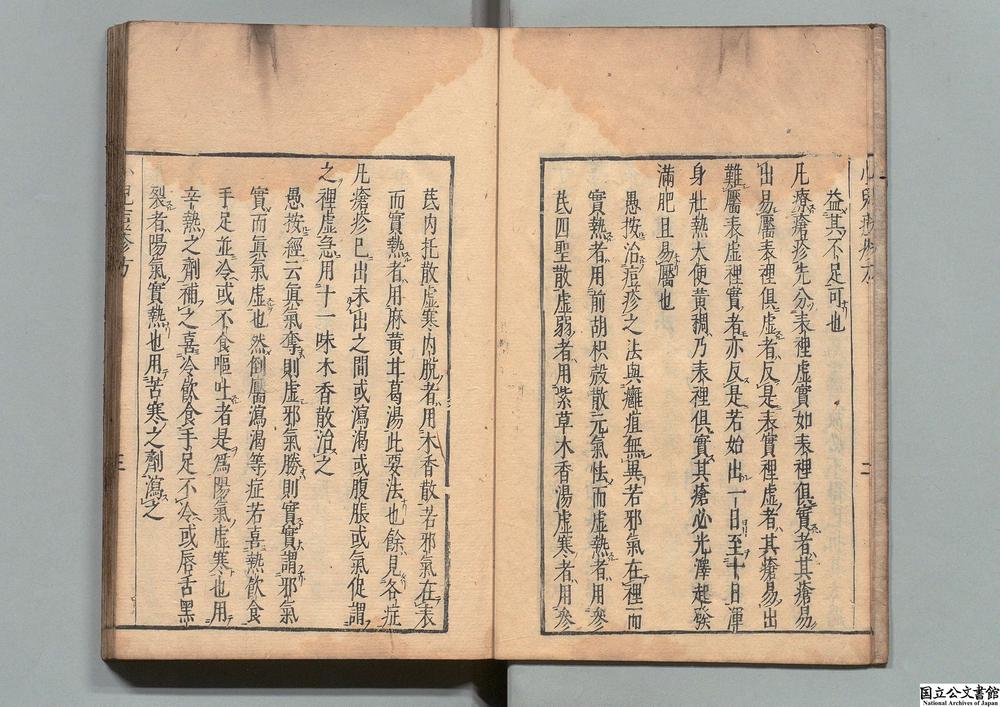 益其不足可也
凡療瘡疹先分表裡虛實如表裡俱實者其瘡易
出易靨表裡俱虛者反是表實裡虛者其瘡易出
難靨表虛裡實者亦反是若始出一日至十日渾
身壯熱大便黃稠乃表裡俱實其瘡必光澤起發
滿肥且易靨也
愚按治痘疹之法與癰疽無異若邪氣在裡而
實熱者用前胡枳殼散元氣怯而虛熱者用參
芪四聖散虛弱者用紫草木香湯虛寒者用參
芪內托散虛寒內脫者用木香散若邪氣在表
而實熱者用麻黃甘葛湯此要法也餘見各症
凡瘡疹已出未出之間或瀉渴或腹脹或氣促謂
之裡虛急用十一味木香散治之
愚按經云眞氣奪則虛邪氣勝則實實謂邪氣
實而眞氣虛也然倒靨瀉渴等症若喜熱飲食
手足並冷或不食嘔吐者是爲陽氣虛寒也用
辛熱之劑補之喜冷飲食手足不冷或唇舌黑
裂者陽氣實熱也用苦寒之劑瀉之
国立公文書館
National Archives of Japan